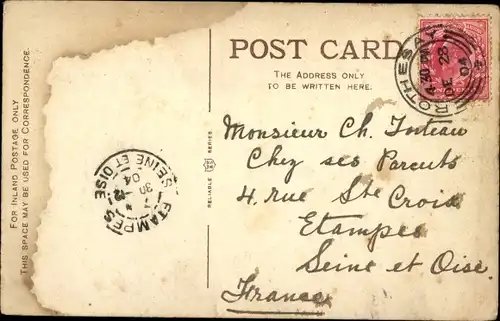 FOR INLAND POSTAGE ONLY
THIS SPACE MAY BE USED FOR CORRESPONDENCE.
POST CARD
THE ADDRESS ONLY
TO BE WRITTEN HERE.
ROTHESAY
DE 28
04
RELIABLE SERIES
ETAMPES
30 -12
04
SEINE ET OISE
Monsieur Ch.
Chez ses Parents
4, rue Ste Croix
Etampes
Seine et Oise.
France